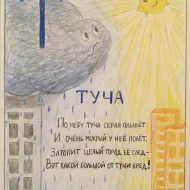 Т
ТУЧА
По небу туча серая плывёт
И очень мокрый у неё полёт,
Затопит целый город её след—
Вот какой большой от тучи вред!